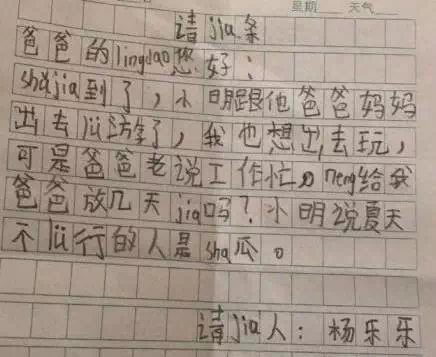 星期 天气
请jia条
爸爸的lingdao您好：
shǔjia到了，小明跟他爸爸妈妈
出去lǚ游了，我也想出去玩，
可是爸爸老说工作忙。neng给我
爸爸放几天jia吗？小明说夏天
不lǚ行的人是sha瓜。
请jia人：杨乐乐